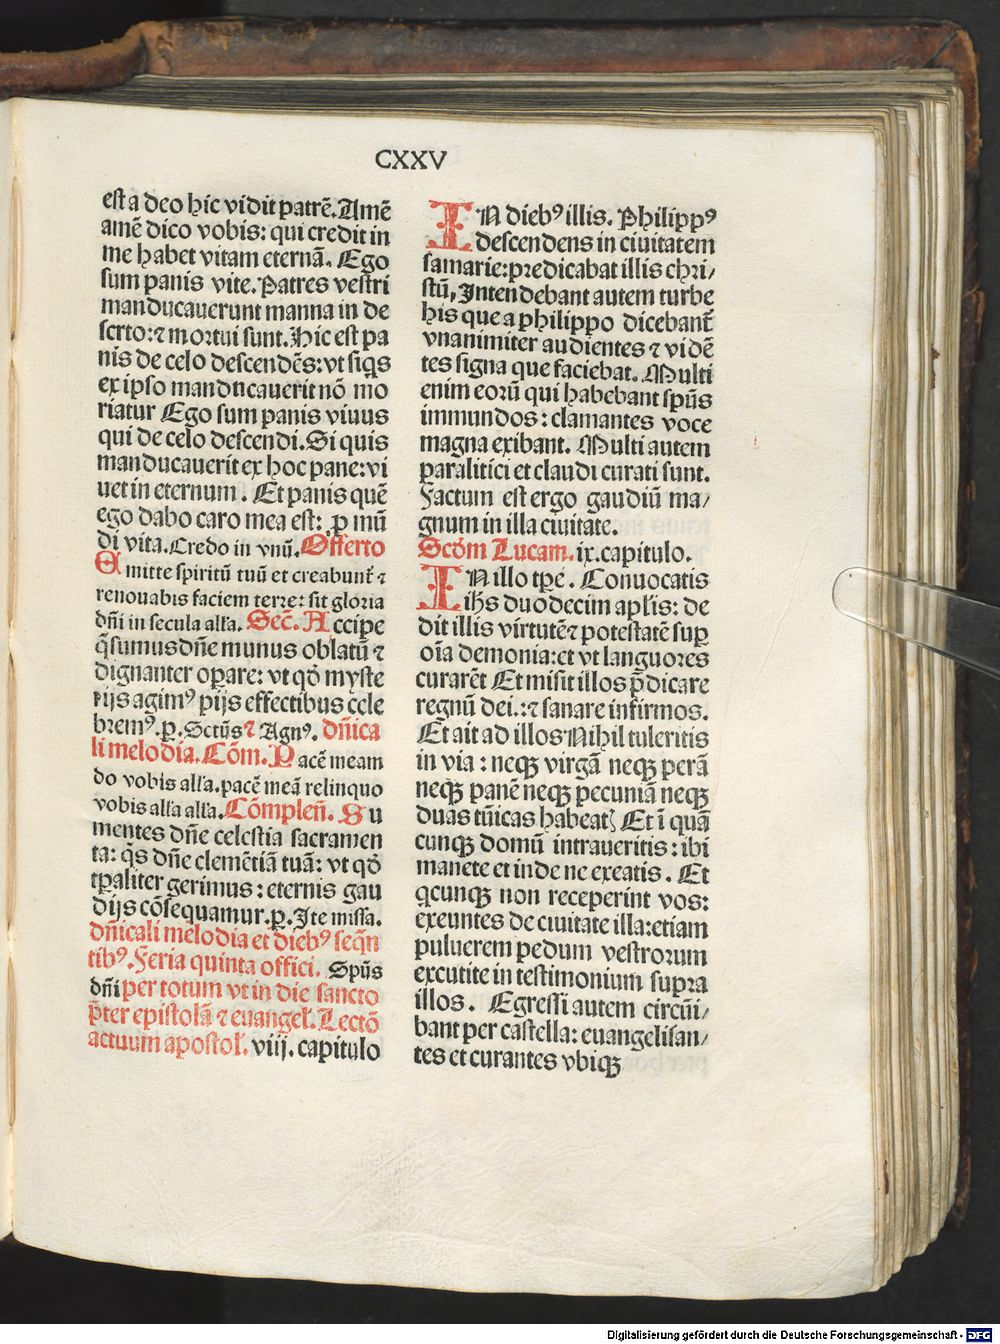 CXXV
est a deo hic vidit patrē. Amē
amē dico vobis: qui credit in
me habet vitam eternā. Ego
sum panis vite. Patres vestri
manducauerunt manna in de
serto: ⁊ mortui sunt. Hic est pa
nis de celo descendēs: vt siqͥs
ex ipso manducauerit nō mo
riatur Ego sum panis viuus
qui de celo descendi. Si quis
manducauerit ex hoc pane: vi
uet in eternum. Et panis quē
ego dabo caro mea est: ꝓ mū
di vita. Credo in vnū. Offerto
Emitte spiritū tuū et creabunt̄ ⁊
renouabis faciem terre: sit gloria
dn̄i in secula all'a. Sec̄. Accipe
q̄sumus dn̄e munus oblatū ⁊
dignanter oꝑare: vt qď myste
rijs agimꝰ pijs effectibus cele
bremꝰ. ꝑ. Sctūs ⁊ Agnꝰ. dn̄ica
li melodia. Cōm. Pacē meam
do vobis all'a. pacē meā relinquo
vobis all'a all'a. Cōmpleñ. Su
mentes dn̄e celestia sacramen
ta: qs̄ dn̄e clemētiā tuā: vt qď
tꝑaliter gerimus: eternis gau
dijs cōsequamur. ꝑ. Ite missa.
dn̄icali melodia et diebꝰ seqn̄
tibꝰ. Feria quinta offici. Spūs
dn̄i per totum vt in die sancto
p̄ter epistolā ⁊ euangeł. Lectō
actuum apostoł. viij. capitulo
IN diebꝰ illis. Philippꝰ
descendens in ciuitatem
samarie: predicabat illis chri/
stū, Intendebant autem turbe
his que a philippo dicebant̄
vnanimiter audientes ⁊ vidē
tes signa que faciebat. Multi
enim eorū qui habebant spūs
immundos: clamantes voce
magna exibant. Multi autem
paralitici et claudi curati sunt.
Factum est ergo gaudiū ma/
gnum in illa ciuitate.
Scďm Lucam. ix. capitulo.
IN illo tꝑe. Conuocatis
ih̄s duodecim apl̄is: de
dit illis virtutē ⁊ potestatē suꝑ
oīa demonia: et vt languores
curarēt Et misit illos p̄dicare
regnū dei.: ⁊ sanare infirmos.
Et ait ad illos Nihil tuleritis
in via: neqꝫ virgā neqꝫ perā
neqꝫ panē neqꝫ pecuniā neqꝫ
duas tūicas habeatꝭ Et ī quā
cunqꝫ domū intraueritis: ibi
manete et inde ne exeatis. Et
qͥcunqꝫ non receperint vos:
exeuntes de ciuitate illa: etiam
puluerem pedum vestrorum
excutite in testimonium supra
illos. Egressi autem circūi/
bant per castella: euangelisan/
tes et curantes vbiqꝫ
Digitalisierung gefördert durch die Deutsche Forschungsgemeinschaft - DFG